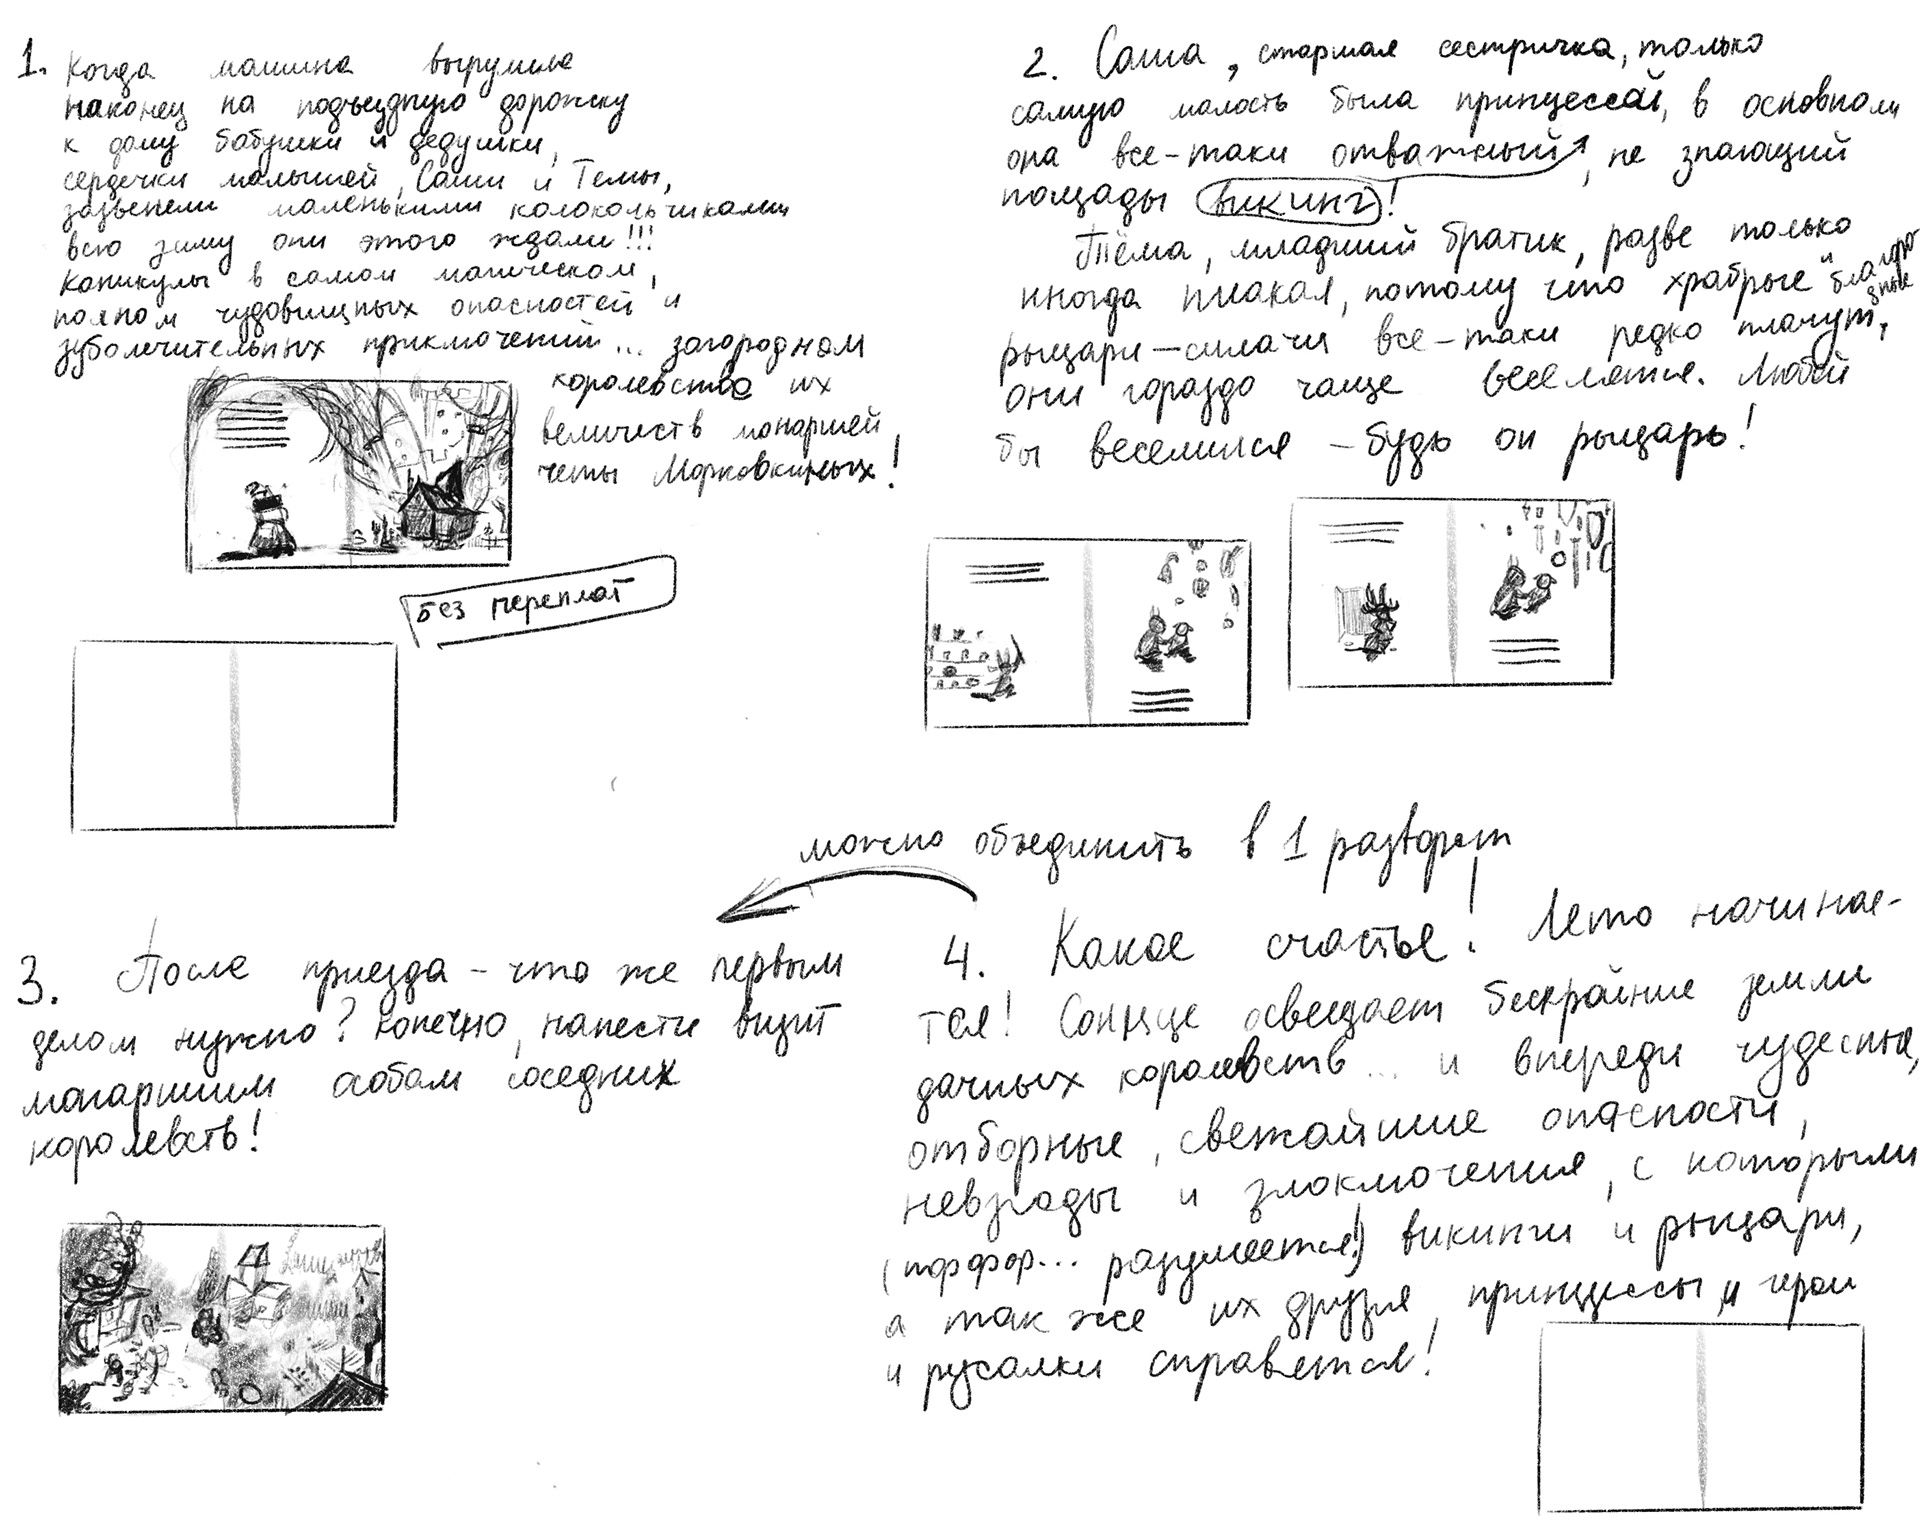 1. Когда машина вырулила
наконец на подъездную дорожку
к дому бабушки и дедушки,
сердечки малышей, Саши и Темы,
зазвенели маленькими колокольчиками
всю зиму они этого ждали!!!
Каникулы в самом магическом,
полном чудовищных опасностей и
зуболечительных приключений... загородном
королевстве их
величеств монаршей
четы Морковкиных!
без переплат
2. Саша, старшая сестричка, только
самую малость была принцессай, в основном
она все-таки отважный, не знающий
пощады викинг!
Тёма, младший братик, разве только
иногда плакал, потому что храбрые и благородные
рыцари-силачи все-таки редко плачут,
они гораздо чаще веселятся. Любой
бы веселился - будь он рыцарь!
можно объединить в 1 разворот
3. После приезда - что же первым
делом нужно? Конечно, нанести визит
монаршим особам соседних
королевств!
4. Какое счастье! Лето начинае-
тся! Солнце освещает бескрайние земли
дачных королевств... и впереди чудесные,
отборные, свежайшие опасности,
невзгоды и злоключения, с которыми
разумеется!) викинги и рыцари,
а так же их друзья, принцессы, и герои
и русалки справятся!